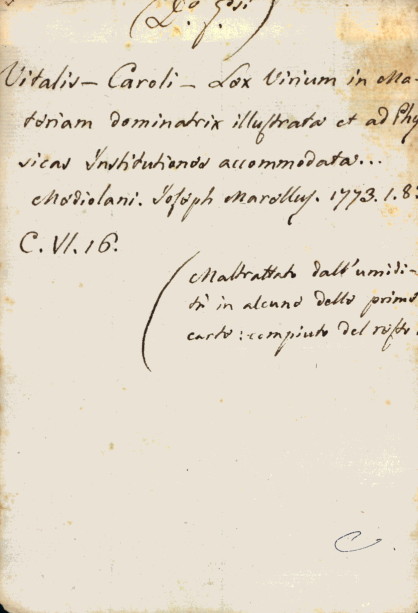 Vitalis - Caroli - Lex Virium in Ma-
teriam dominatrix illustrata et ad Phy
sicas Institutiones accommodata...
Mediolani. Joseph Marellus. 1773. 1. 8.
C. VI. 16.
(Maltrattato dall'umidi-
tà in alcune delle prime
carte: compiuto del resto.
C.